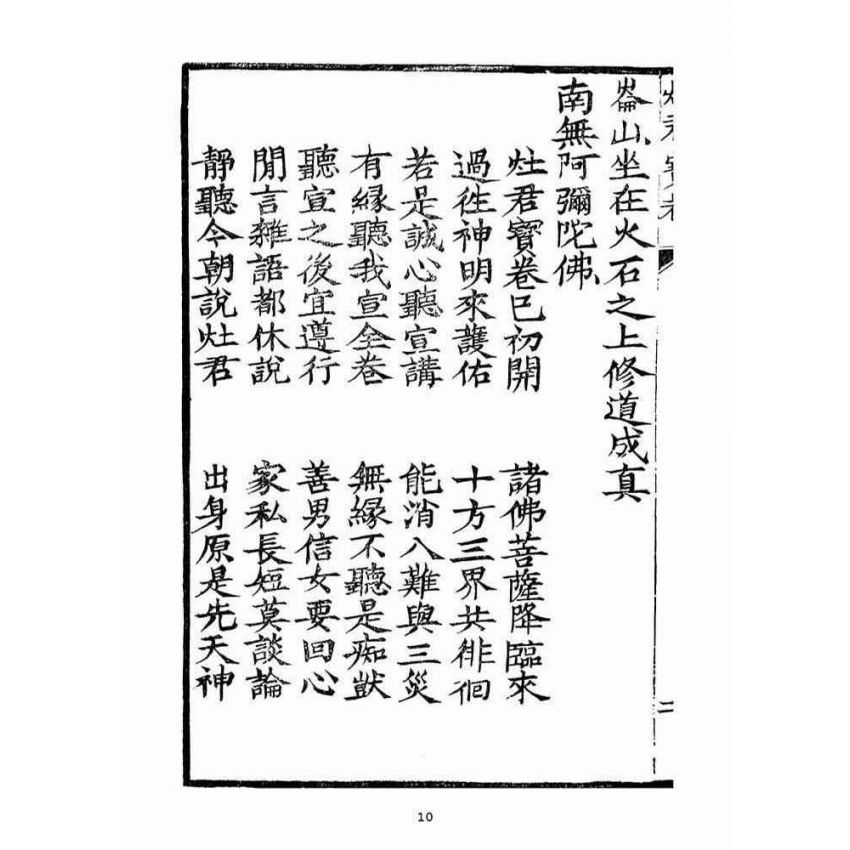 崙山坐在火石之上修道成真
南無阿彌陀佛
灶君寳卷巳初開　諸佛菩薩降臨來
過徃神明來護佑　十方三界共徘徊
若是誠心聽宣講　能消八難與三災
有緣聽我宣全卷　無緣不聽是痴獃
聽宣之後宜遵行　善男信女要回心
閒言雜語都休說　家私長短莫談論
靜聽今朝說灶君　出身原是先天神
二
10